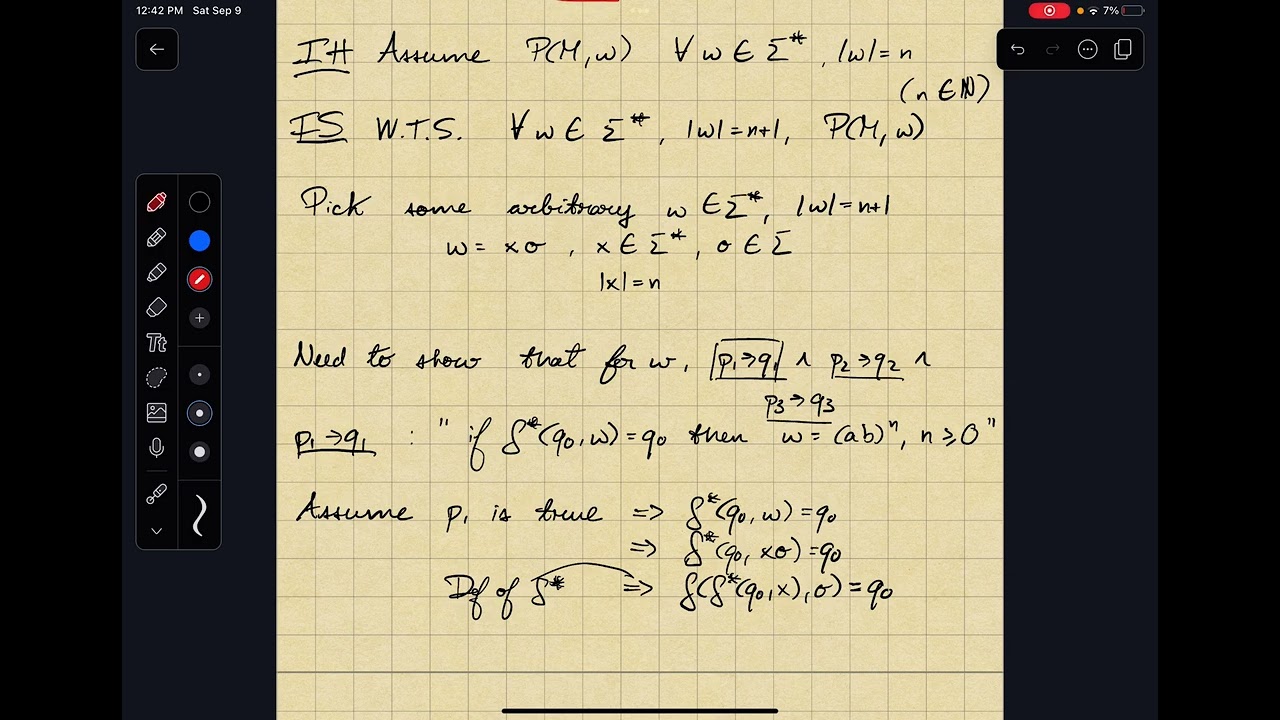 12:42 PM Sat Sep 9
7%
IH Assume P(M, w) ∀ w ∈ Σ*, |w| = n
(n ∈ ℕ)
IS W.T.S. ∀ w ∈ Σ*, |w| = n+1, P(M, w)
Pick some arbitrary w ∈ Σ*, |w| = n+1
w = xσ, x ∈ Σ*, σ ∈ Σ
|x| = n
Need to show that for w, p₁→q₁ ∧ p₂→q₂ ∧
p₃→q₃
p₁→q₁ : "if δ*(q₀, w) = q₀ then w = (ab)ⁿ, n ≥ 0"
Assume p₁ is true ⇒ δ*(q₀, w) = q₀
⇒ δ*(q₀, xσ) = q₀
Df of δ* ⇒ δ(δ*(q₀, x), σ) = q₀
Tt